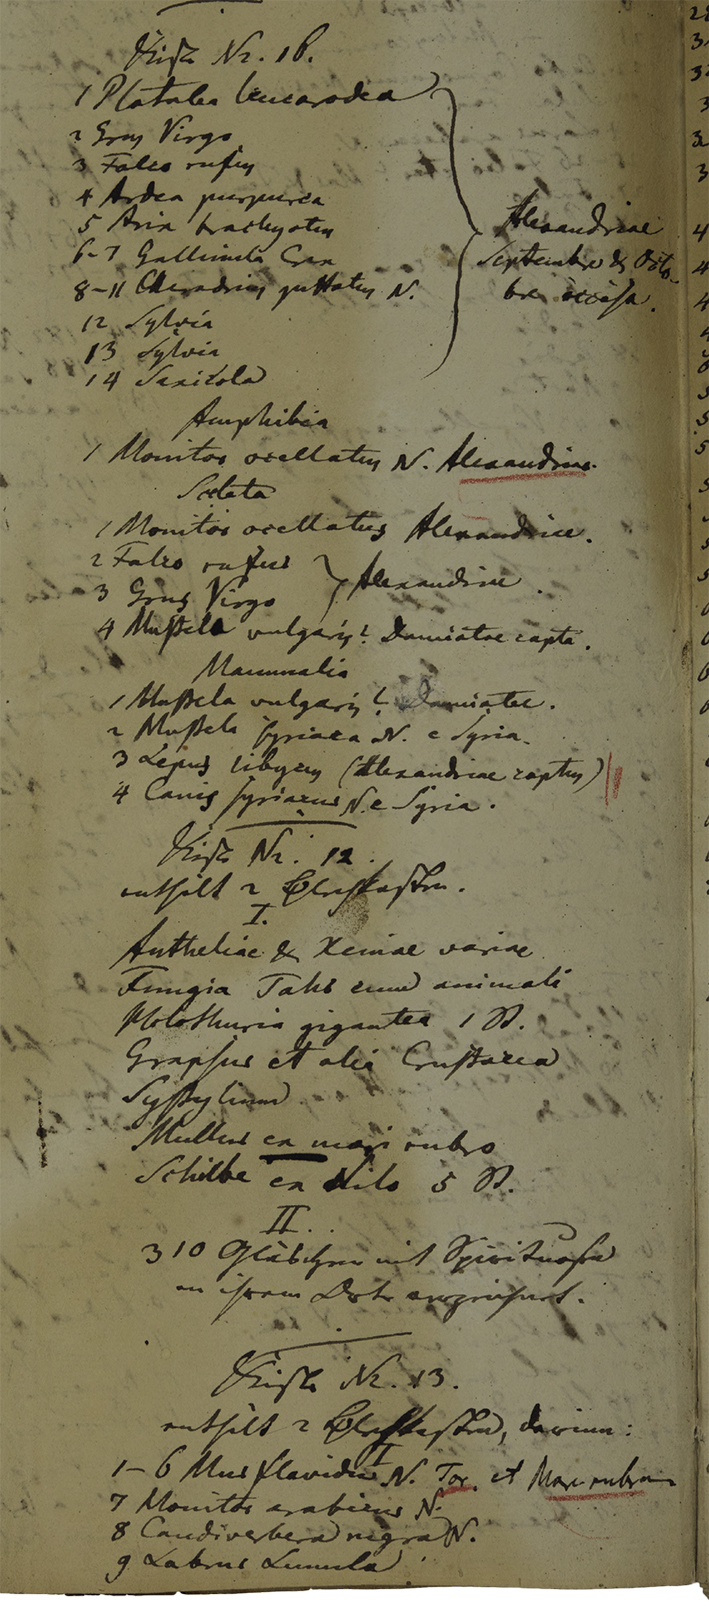 Kiste Nr. 16.
1 Platalea leucorodea
2 Grus Virgo
3 Falco rufus
4 Ardea purpurea
5 brachyotus
6-7 Gallinula Crex
8-11 Charadrius guttatus N.
12 Sylvia
13 Sylvia
14 Saxicola
Alexandriae
Septembre & Octo-
bre occisa.
Amphibia
1 Monitor ocellatus N. Alexandriae.
Sceleta
1 Monitor ocellatus Alexandriae.
2 Falco rufus
3 Grus Virgo
Alexandriae.
4 Mustela vulgaris? Damiatae capta.
Mammalia
1 Mustela vulgaris? Damiatae.
2 Mustela syriaca N. e Syria.
3 Lepus libycus (Alexandriae captus)
4 Canis syriacus N. e Syria.
Kiste Nr. 12.
enthält 2 Blechkasten.
I.
Antheliae & Xeniae variae
Fungia cum animali
Holothuria gigantea 1 St.
Grapsus et alia Crustacea
Mullus ex mari rubro
Schilbe ex Nilo 5 St.
II.
310 Gläschen mit Spirituosa
an ihrem Orte
Kiste Nr. 13.
enthält 2 Blechkasten, darinn:
I
1-6 Mus flavidus N. Tor. et Mare rubrum
7 Monitor arabicus N.
8 Caudiverbera nigra N.
9 Labrus Lunula